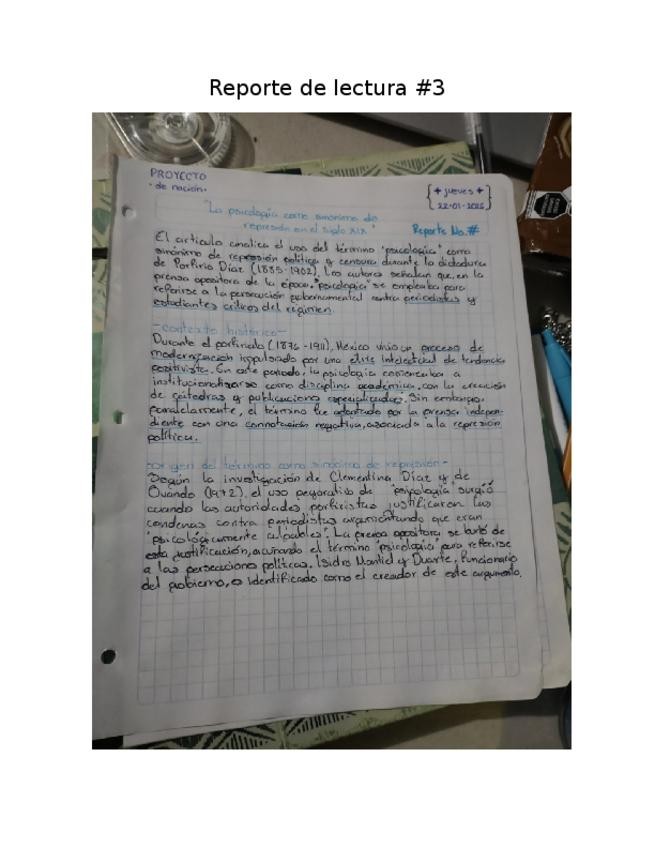 Reporte de lectura #3
PROYECTO
• de nación.
+ jueves +
22-01-2026
"La psicología como sinónimo de
represión en el siglo XIX"
Reporte No.#
El artículo analiza el uso del término "psicología" como
sinónimo de represión política y censura durante la dictadura
de Porfirio Díaz (1885-1902). Los autores señalan que, en la
prensa opositora de la época, "psicología" se empleaba para
referirse a la persecución gubernamental contra periodistas y
estudiantes críticos del régimen.
-contexto histórico-
Durante el porfiriato (1876-1911), México vivió un proceso de
modernización impulsado por una élite intelectual de tendencia
positivista. En este periodo, la psicología comenzaba a
institucionalizarse como disciplina académica, con la creación
de cátedras y publicaciones especializadas. Sin embargo,
paralelamente, el término fue adoptado por la prensa indepen-
diente con una connotación negativa, asociada a la represión
política.
-origen del término como sinónimo de represión-
Según la investigación de Clementina Díaz y de
Ovando (1972), el uso peyorativo de "psicología" surgió
cuando las autoridades porfiristas justificaron las
condenas contra periodistas argumentando que eran
"psicológicamente culpables". La prensa opositora se burló de
esta justificación, acuñando el término "psicología" para referirse
a las persecuciones políticas. Isidro Montiel y Duarte, funcionario
del gobierno, es identificado como el creador de este argumento.